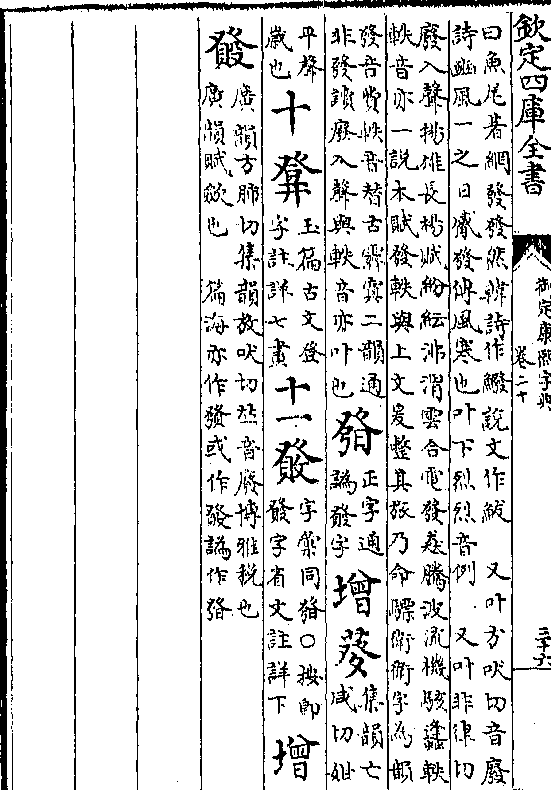 欽定四庫全書
御定康熙字典
卷二十
三十六
曰魚尾著網發發然韓詩作鱍說文作鮁 又叶方吠切音廢
詩豳風一之日觱發傳風寒也叶下烈烈音例 又叶非律切
廢入聲揚雄長楊賦紛紜沸渭雲合電發猋騰波流機駭蠭軼
軼音亦一說本賦發軼與上文爰整其旅乃命驃衛衛字為韻
發音費軼音替古霽寘二韻通
非發讀廢入聲與軼音亦叶也
正字通
譌發字
增
集韻亡
咸切姏
平聲
歲也
十
玉篇古文登
字註詳七畫
十一
字彙同發○按卽
發字省文註詳下
增
廣韻方肺切集韻放吠切𠀤音廢博雅稅也
廣韻賦斂也 篇海亦作發或作發譌作